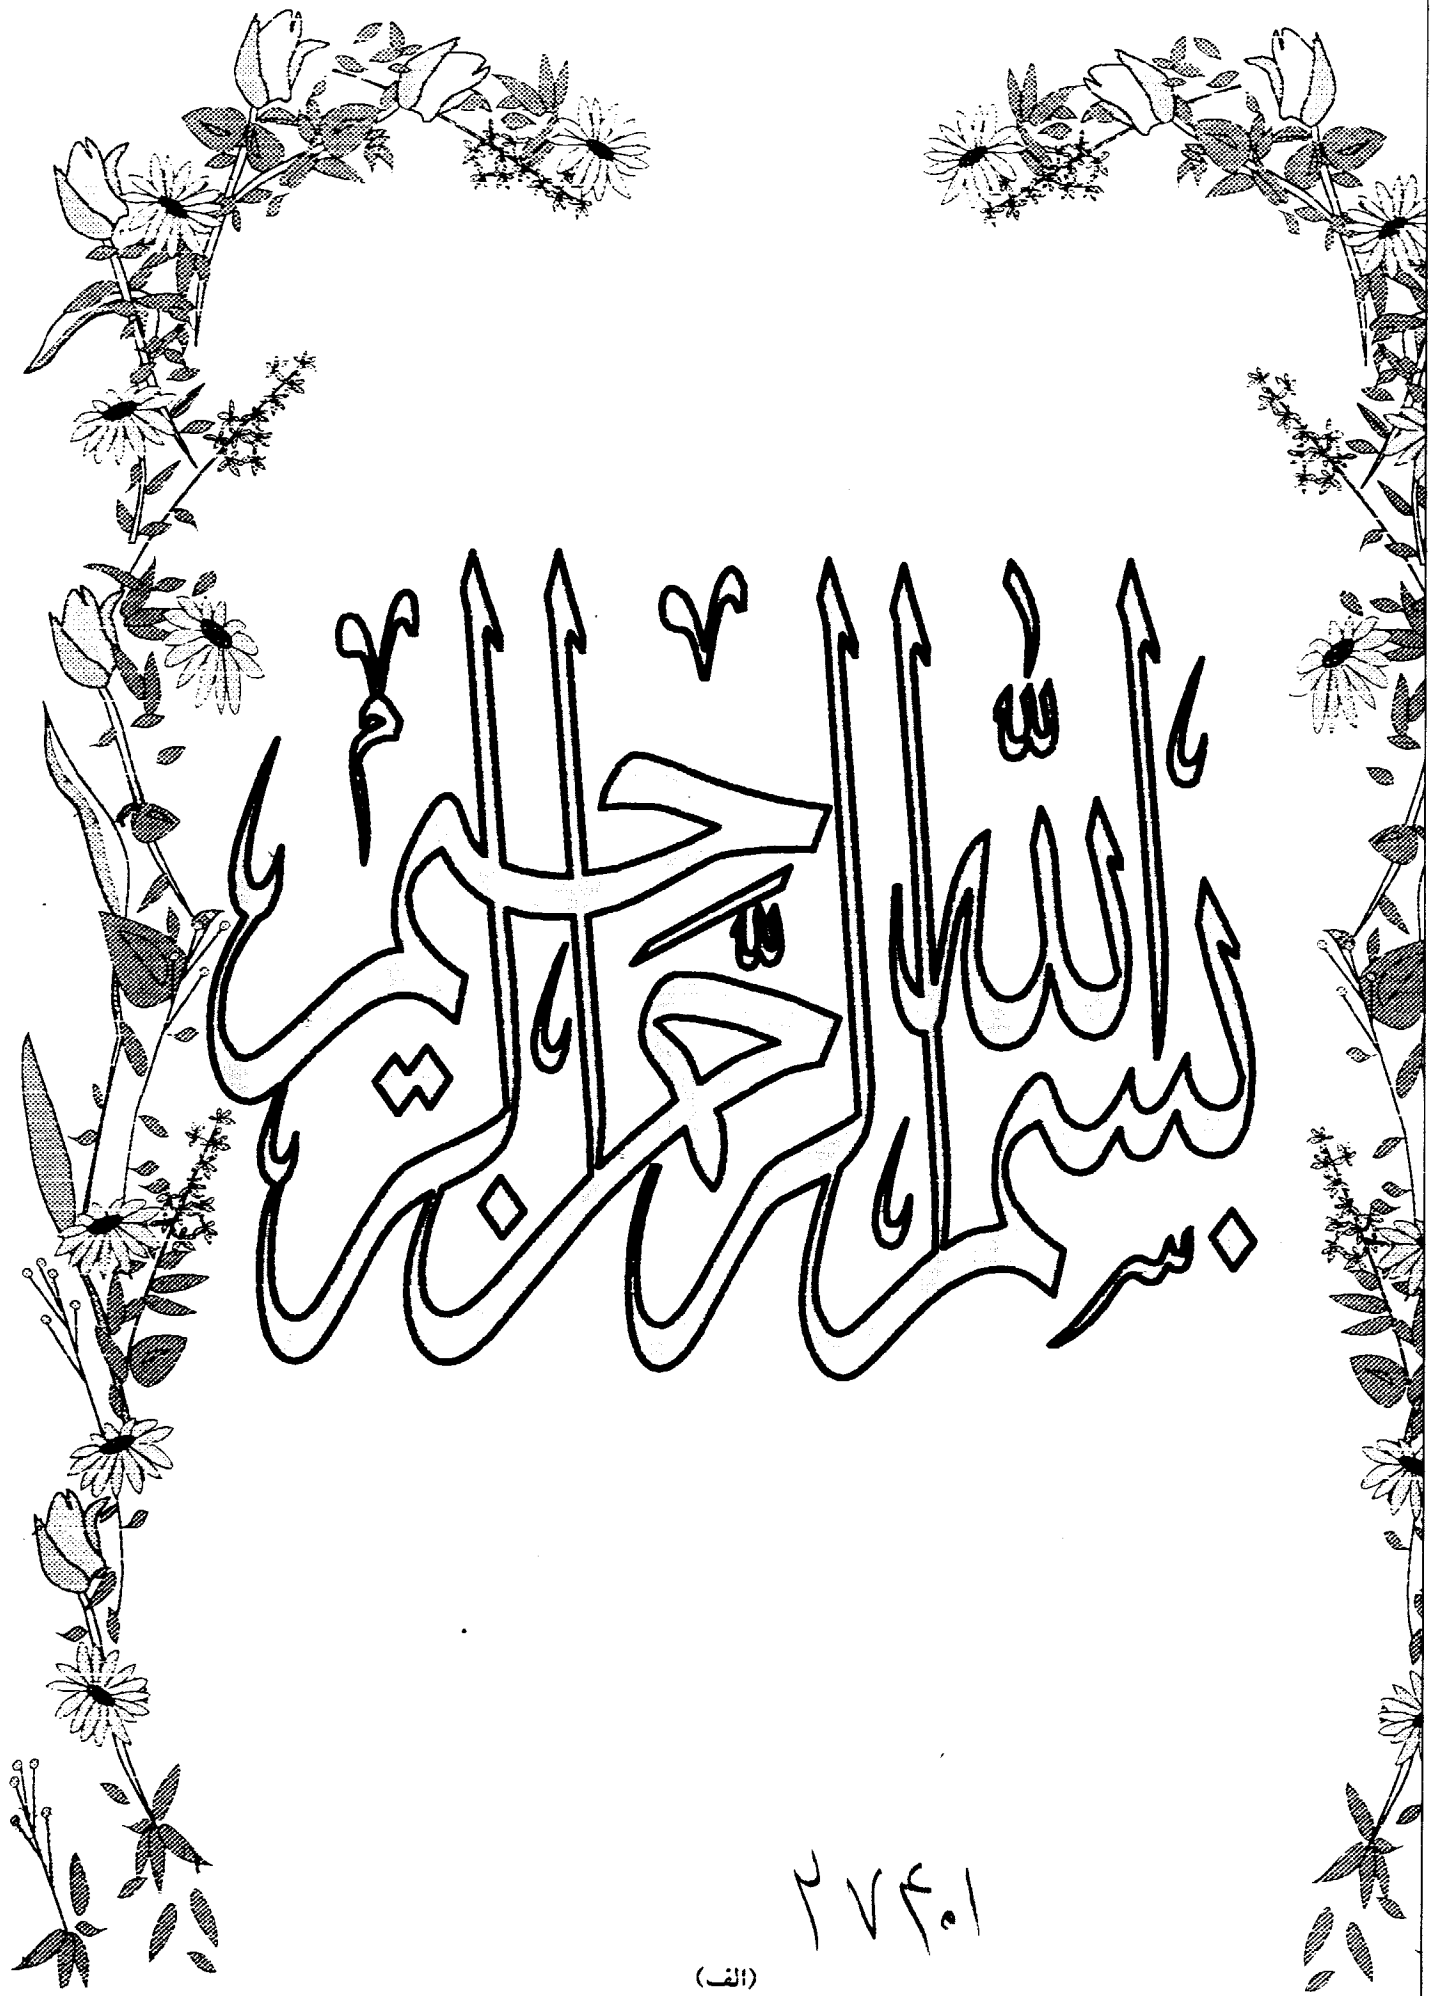 بسم الله الرحمن الرحیم
۲۷۴۰۱
(الف)